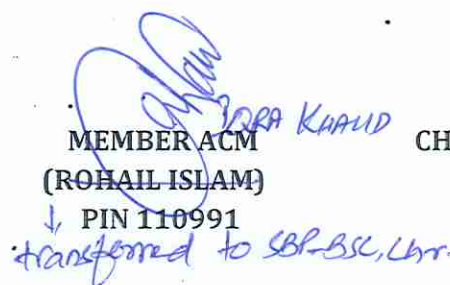 IQRA KHALID
MEMBER ACM CH
(ROHAIL ISLAM)
PIN 110991
transferred to SBP-BSC, Lhr.